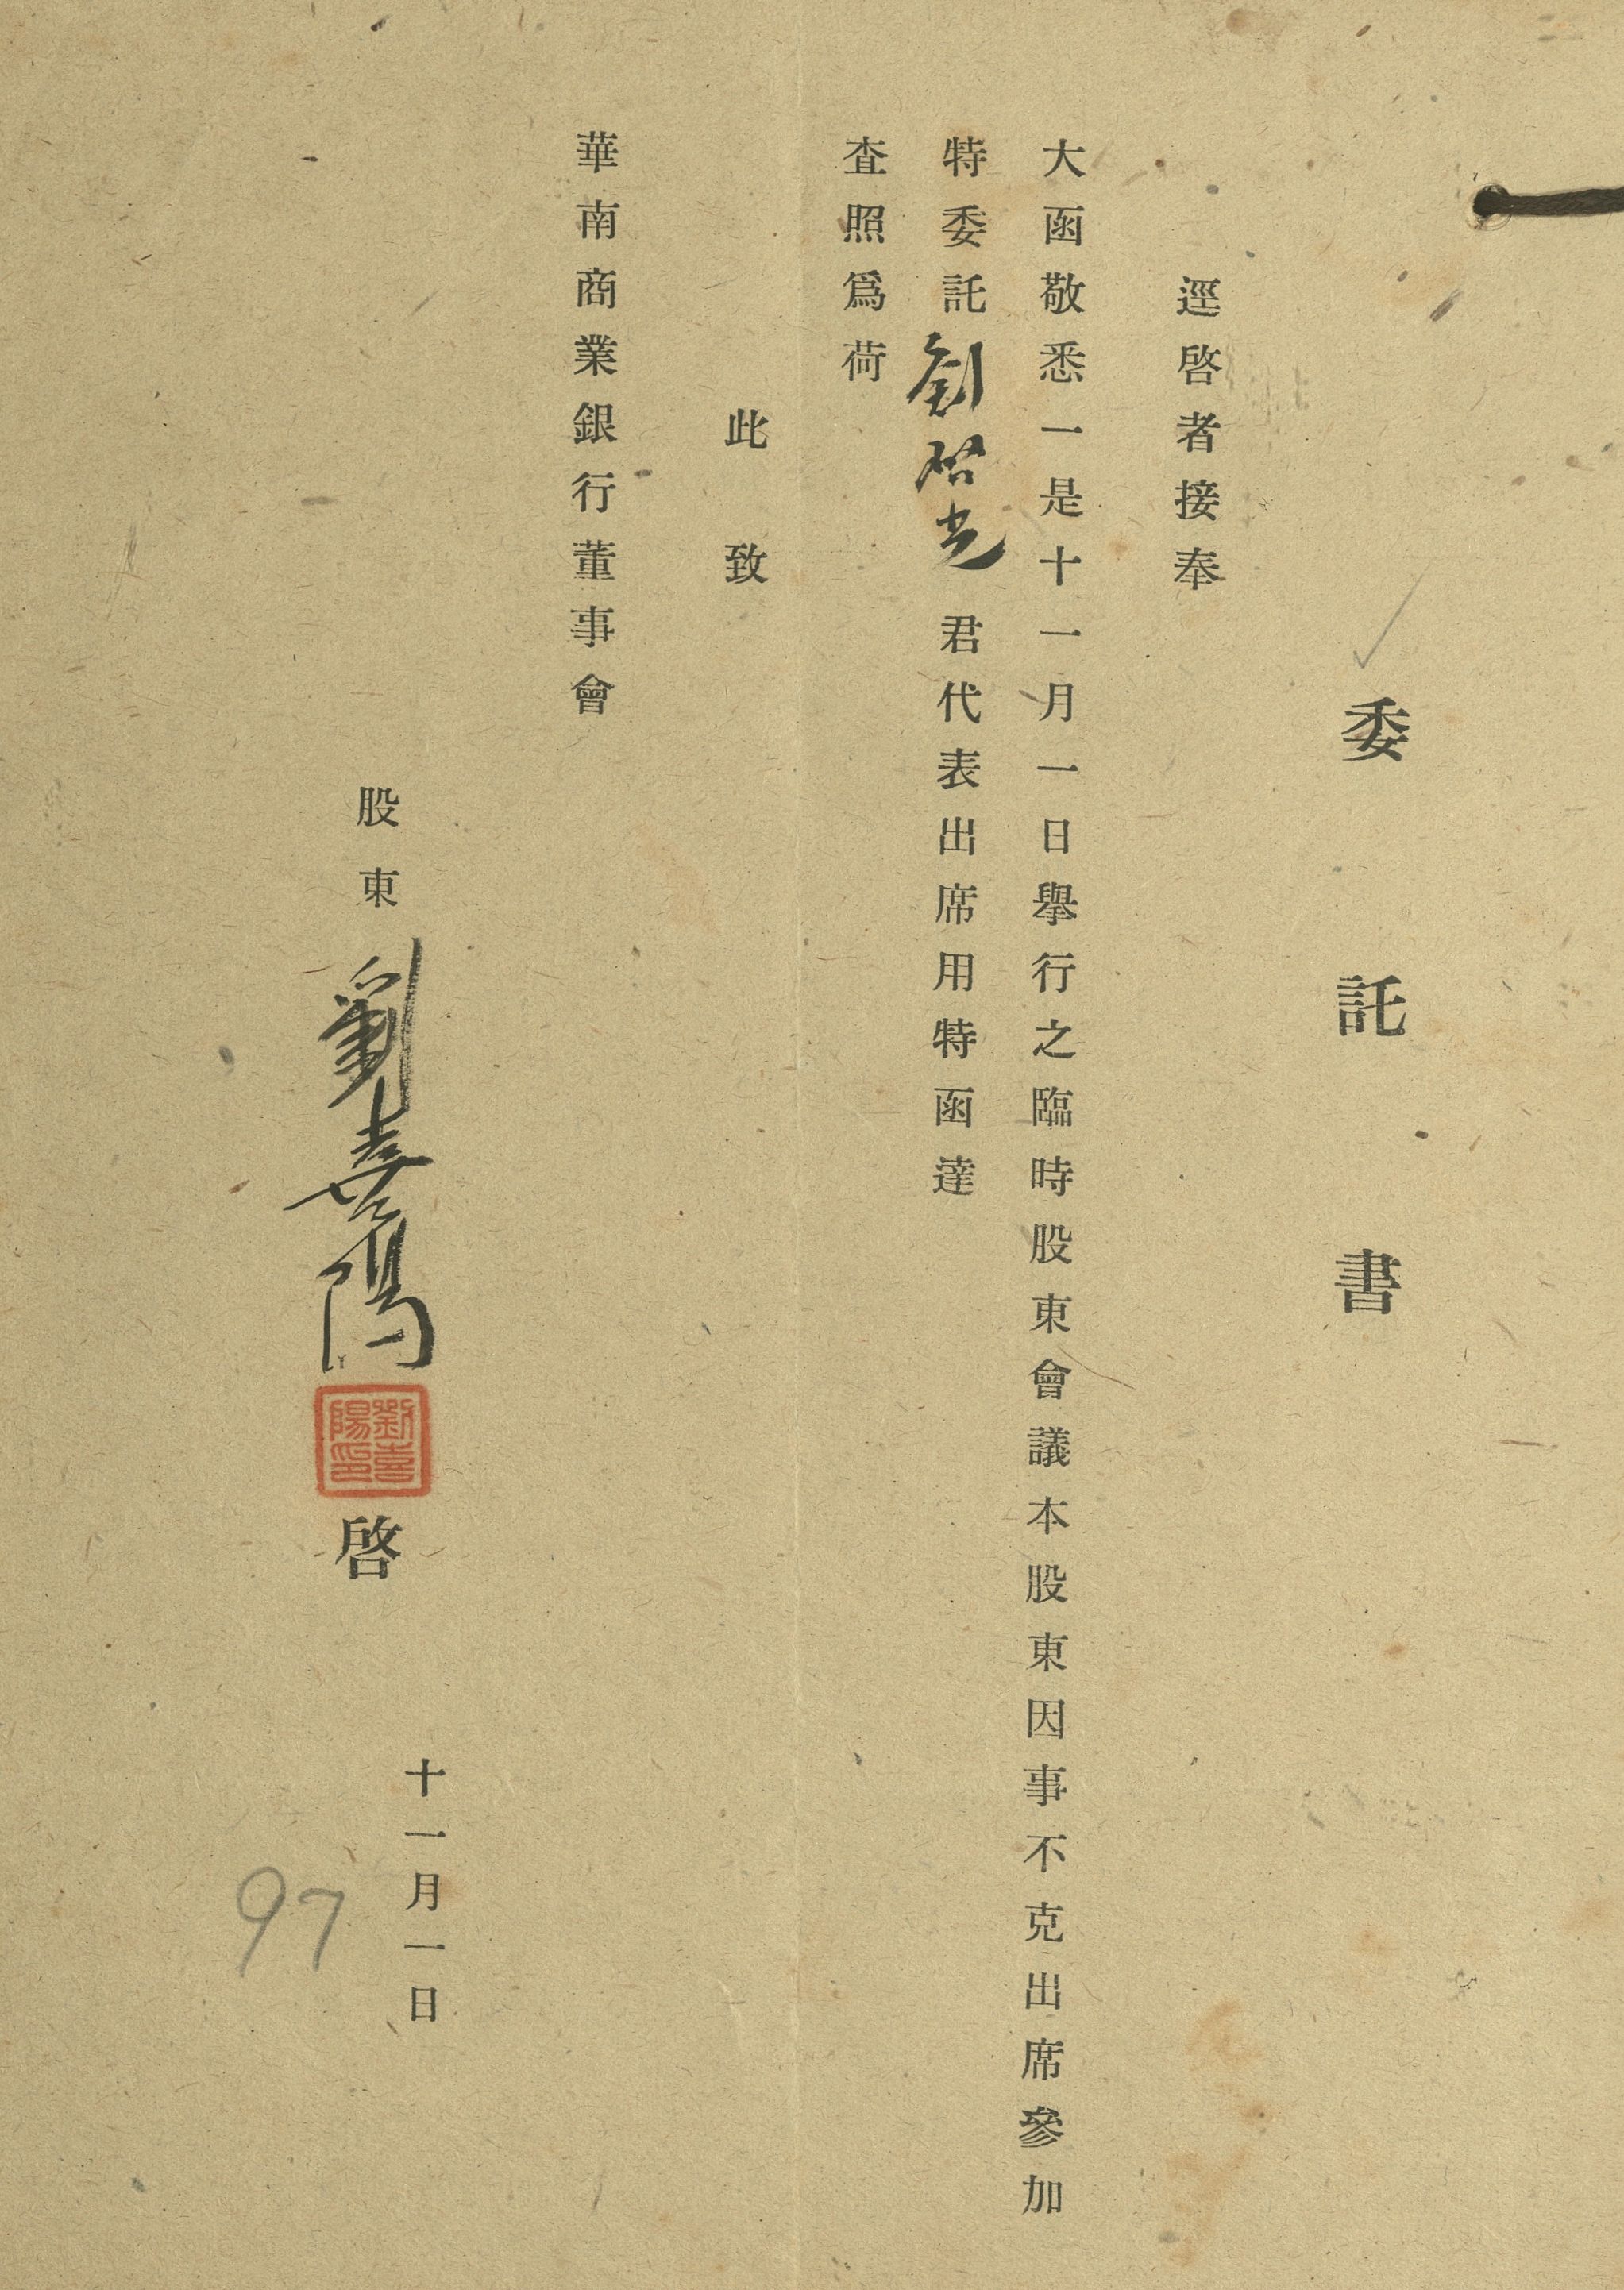 委託書
逕啓者接奉
大函敬悉一是十一月一日舉行之臨時股東會議本股東因事不克出席參加
特委託劉啓光君代表出席用特函達
查照爲荷
此致
華南商業銀行董事會
股東劉喜陽啓
劉喜陽印
十一月一日
97